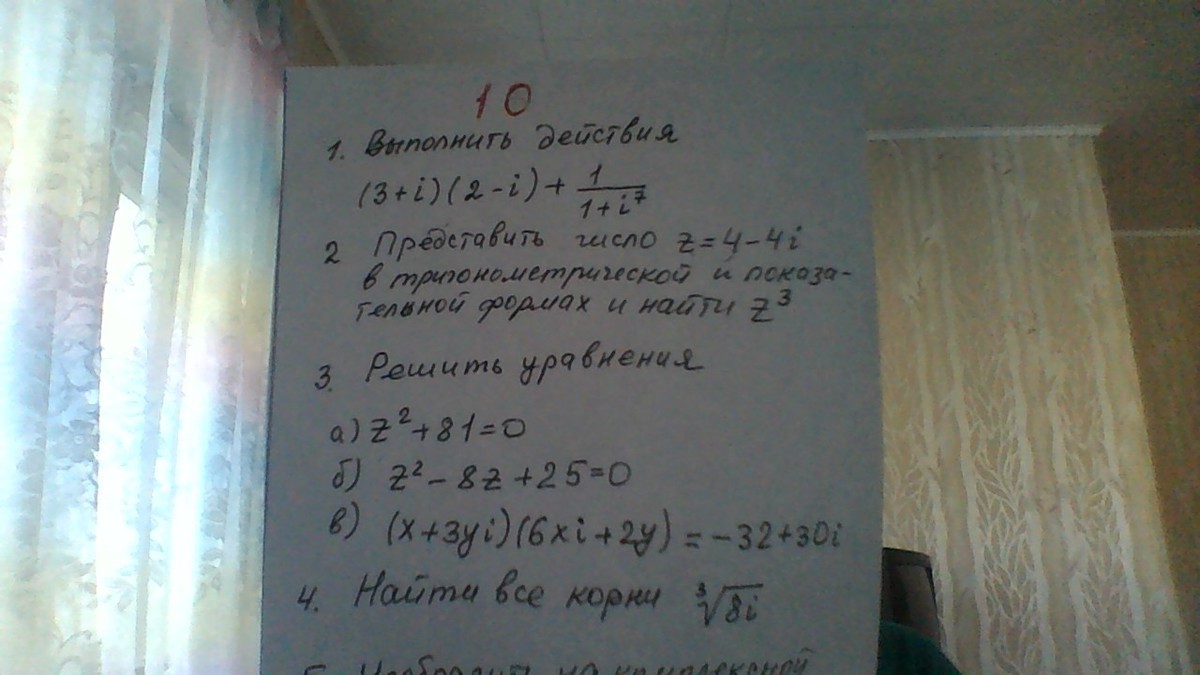 10
1. Выполнить действия
(3+i)(2-i)+\frac{1}{1+i^7}
2 Представить число z=4-4i
в тригонометрической и показа-
тельной формах и найти z^3
3. Решить уравнения
а) z^2+81=0
б) z^2-8z+25=0
в) (x+3yi)(6xi+2y)=-32+30i
4. Найти все корни \sqrt[3]{8i}